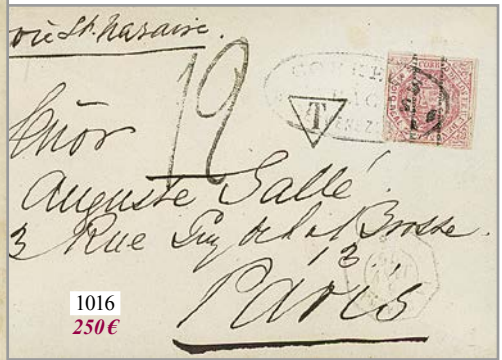 via St. Nazaire.
12
CORREOS
T
Señor
Auguste Sallé.
3 Rue Guy de la Brosse.
3
Paris
1016
250€